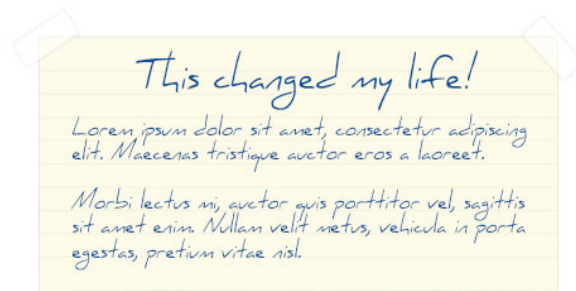 This changed my life!
Lorem ipsum dolor sit amet, consectetur adipiscing
elit. Maecenas tristique auctor eros a laoreet.
Morbi lectus mi, auctor quis porttitor vel, sagittis
sit amet enim. Nullam velit metus, vehicula in porta
egestas, pretium vitae nisl.